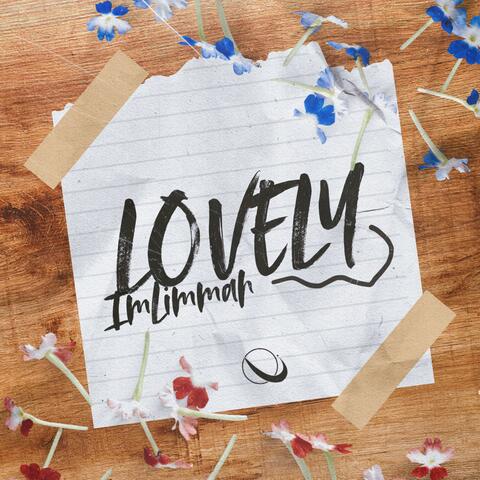 LOVELY
ImLimmah